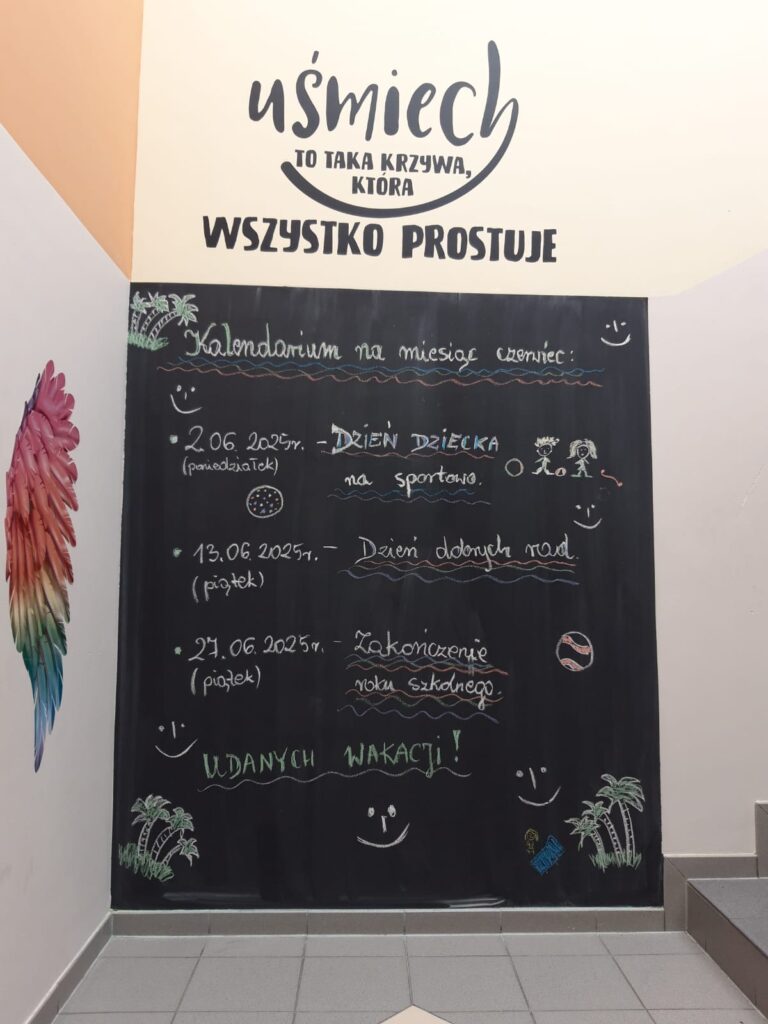 uśmiech
TO TAKA KRZYWA,
KTÓRA
WSZYSTKO PROSTUJE
Kalendarium na miesiąc czerwiec:
• 2.06.2025r. - DZIEŃ DZIECKA
(poniedziałek)
na sportowo.
• 13.06.2025r. - Dzień dobrych rad.
(piątek)
• 27.06.2025r. - Zakończenie
(piątek)
roku szkolnego.
UDANYCH WAKACJI!